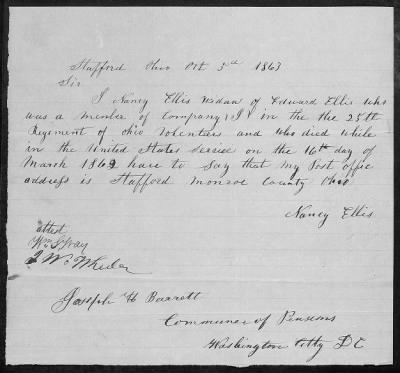 Stafford Ohio Oct 5th 1863
Sir
I Nancy Ellis widaw of Edward Ellis who
was a member of Company I in the the 25th
Regiment of Ohio Volentars and who died while
in the United States Service on the 16th day of
March 1862 have to Say that my Post offic
address is Stafford Monroe County Ohio
Nancy Ellis
attest
Wm S Way
J W Wheeler
Joseph H Barrett
Commisner of Pensions
Washington Citty DC